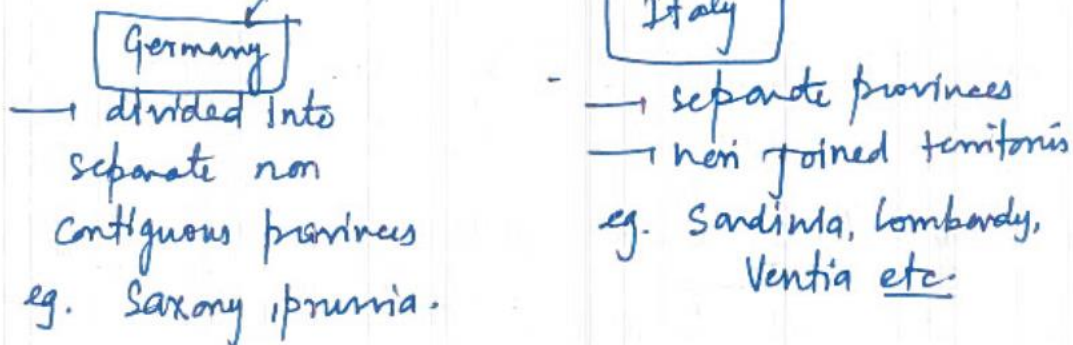 Germany
→ divided into
separate non
contiguous provinces
eg. Saxony, prussia.
Italy
- → separate provinces
→ non joined territoris
eg. Sardinia, Lombardy,
Ventia etc.